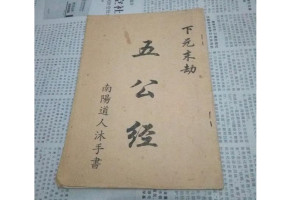 下元末劫
五公经
南陽道人沐手書